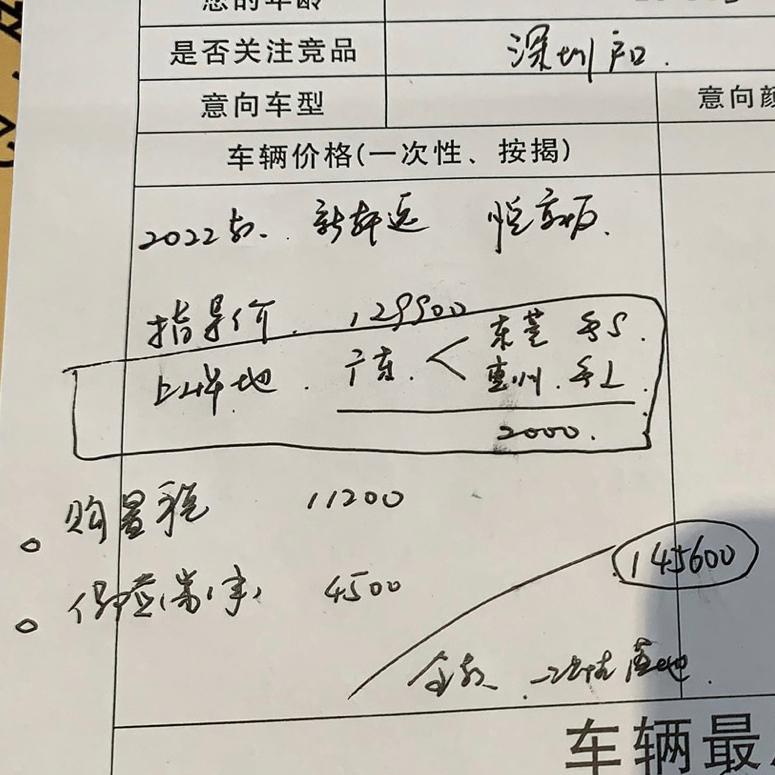 您的年龄
是否关注竞品 深圳户.
意向车型 意向颜
车辆价格(一次性、按揭)
2022款. 新轩逸 悦享版.
指导价. 129900
上牌地. 广东. < 东莞 粤S.
惠州. 粤L.
2000.
购置税 11200
145600
保险(第1年) 4500
全款 一次性落地.
车辆最